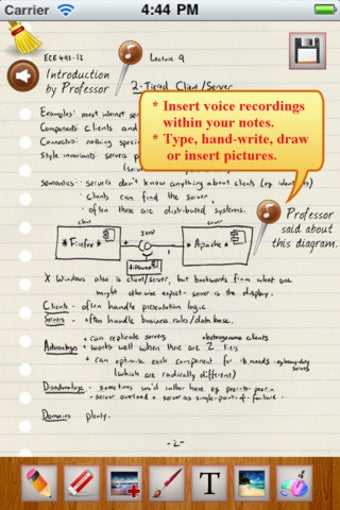 Carrier 4:44 PM
ECE 493-T3 Lecture 9
Introduction
by Professor
2-Tiered Client/Server
* Insert voice recordings
within your notes.
* Type, hand-write, draw
or insert pictures.
Examples: most internet ser
Components: clients and
Connectors: nothing speci
Style invariants: servers p
(serve
semantics - servers don't know anything about clients (eg identities)
- clients can find the server,
- often these are distributed systems.
Professor
said about
this diagram.
client server
* Firefox * * Apache *
X Windows also is client/server, but backwards from what one
might otherwise expect - server is the display.
Clients - often handle presentation logic.
Servers - often handle business rules/database.
Advantages + can replicate servers heterogeneous clients
+ works well when there are 2 tiers
+ can optimise each component for its needs
(which are radically different)
Disadvantage - sometimes we'd rather have eg peer-to-peer
- server overload + server as single-point-of-failure -
Domains plenty.
-2-
T